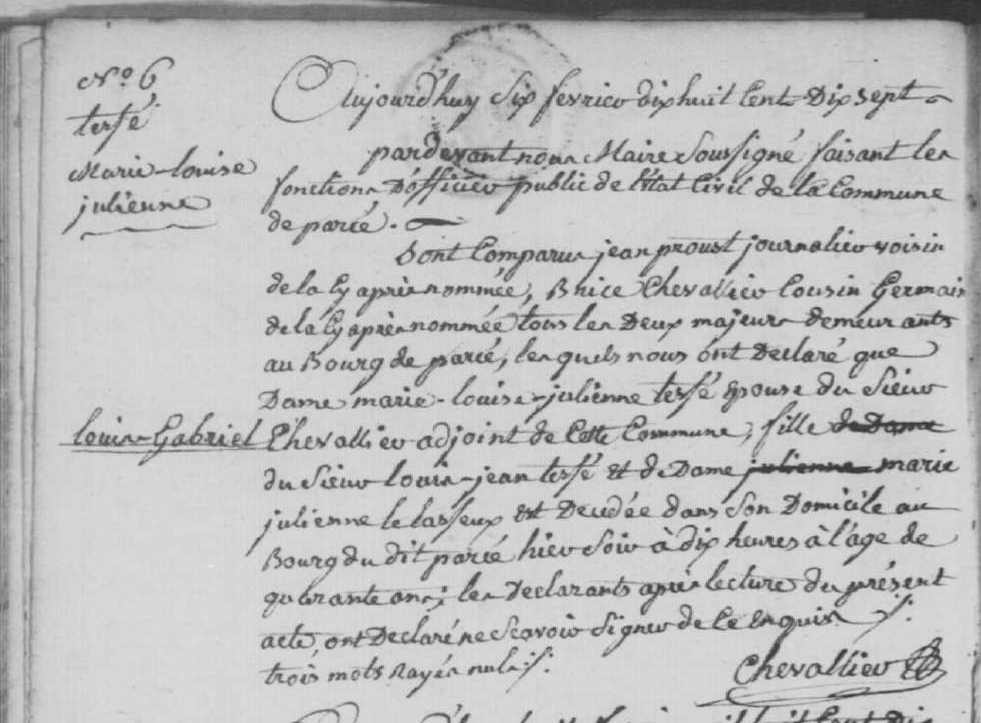 N.o 6
tessé
Marie-louise
julienne
Aujourd'huy Six fevrier dix huit Cent Dix sept
pardevant nous Maire Soussigné faisant les
fonctions D'officier public de l'Etat Civil de la Commune
de parcé.
Sont Comparus jean proust journalier voisin
de la Cy après nommée, Brice Chevallier Cousin Germain
de la Cy après nommée tous les Deux majeurs demeurants
au Bourg de parcé, les quels nous ont Declaré que
Dame marie-louise-julienne tessé Epouse du Sieur
louis-Gabriel Chevallier adjoint de Cette Commune, fille de Dame
du Sieur louis-jean tessé et de Dame julienne marie
julienne le lasseux est Decedée dans Son Domicile au
Bourg du dit parcé hier Soir à dix heures à l'âge de
quarante ans; les Declarants après lecture du présent
acte, ont Declaré ne Scavoir Signer de Ce Enquis ./.
trois mots rayés nuls ./.
Chevallier